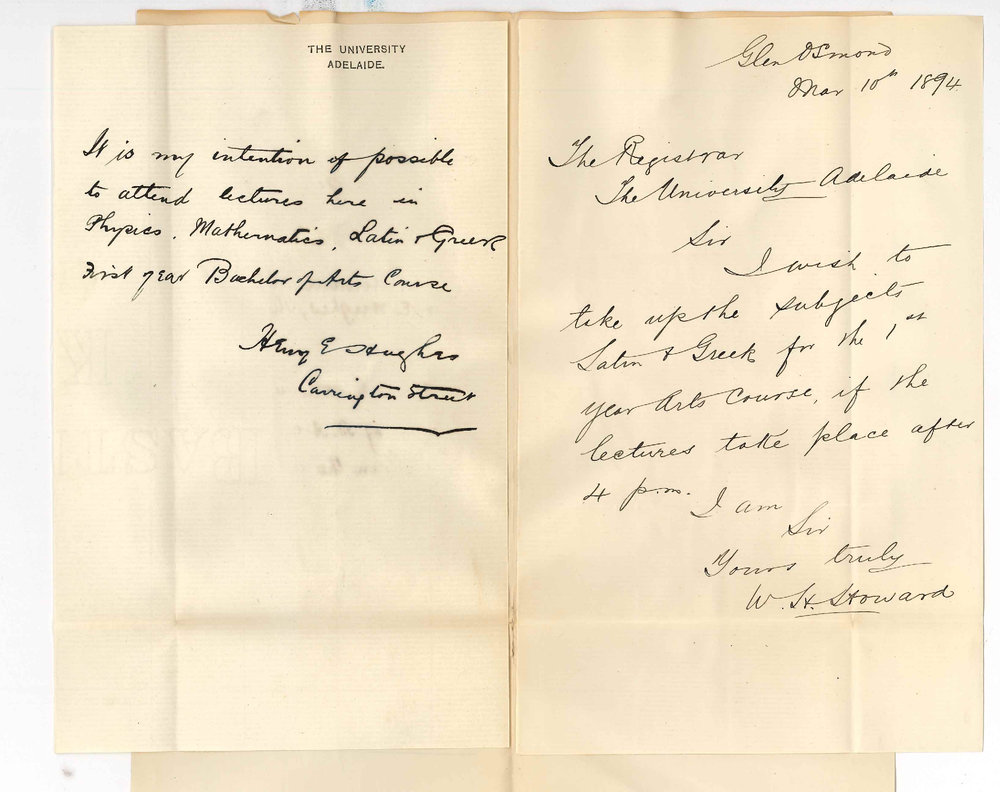 THE UNIVERSITY
ADELAIDE.
It is my intention if possible
to attend lectures here in
Physics, Mathematics, Latin & Greek
First year Bachelor of Arts Course
Henry E Hughes
Carrington Street
Glen Osmond
Mar 10th 1894
The Registrar
The University Adelaide
Sir
I wish to
take up the subjects
Latin & Greek for the 1st
year Arts Course, if the
lectures take place after
4 p.m.
I am
Sir
Yours truly
W. H. Howard